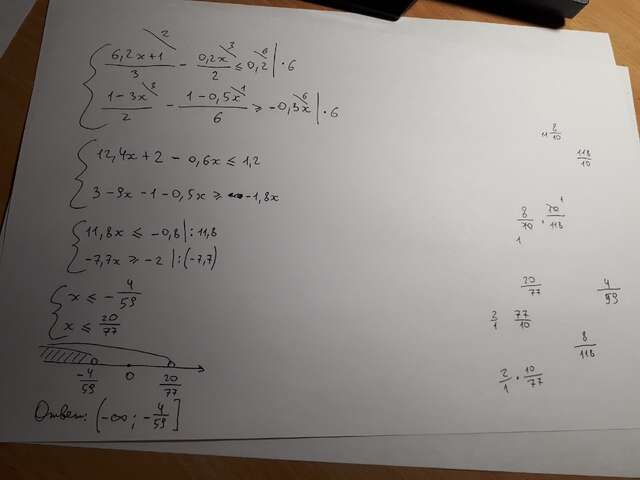 { (6,2x+1)/3 \2 - 0,2x/2 \3 ≤ 0,2 \6 | · 6
(1-3x)/2 \3 - (1-0,5x)/6 \1 ≥ -0,3x \6 | · 6
{ 12,4x + 2 - 0,6x ≤ 1,2
3 - 9x - 1 - 0,5x ≥ -1,8x
{ 11,8x ≤ -0,8 | : 11,8
-7,7x ≥ -2 | : (-7,7)
{ x ≤ - 4/59
x ≤ 20/77
-4/59 0 20/77
Ответ: (-∞; -4/59]
8/10
118/10
8/10 · 10/118
1 1
20/77 4/59
2/1 77/10
8/118
2/1 · 10/77